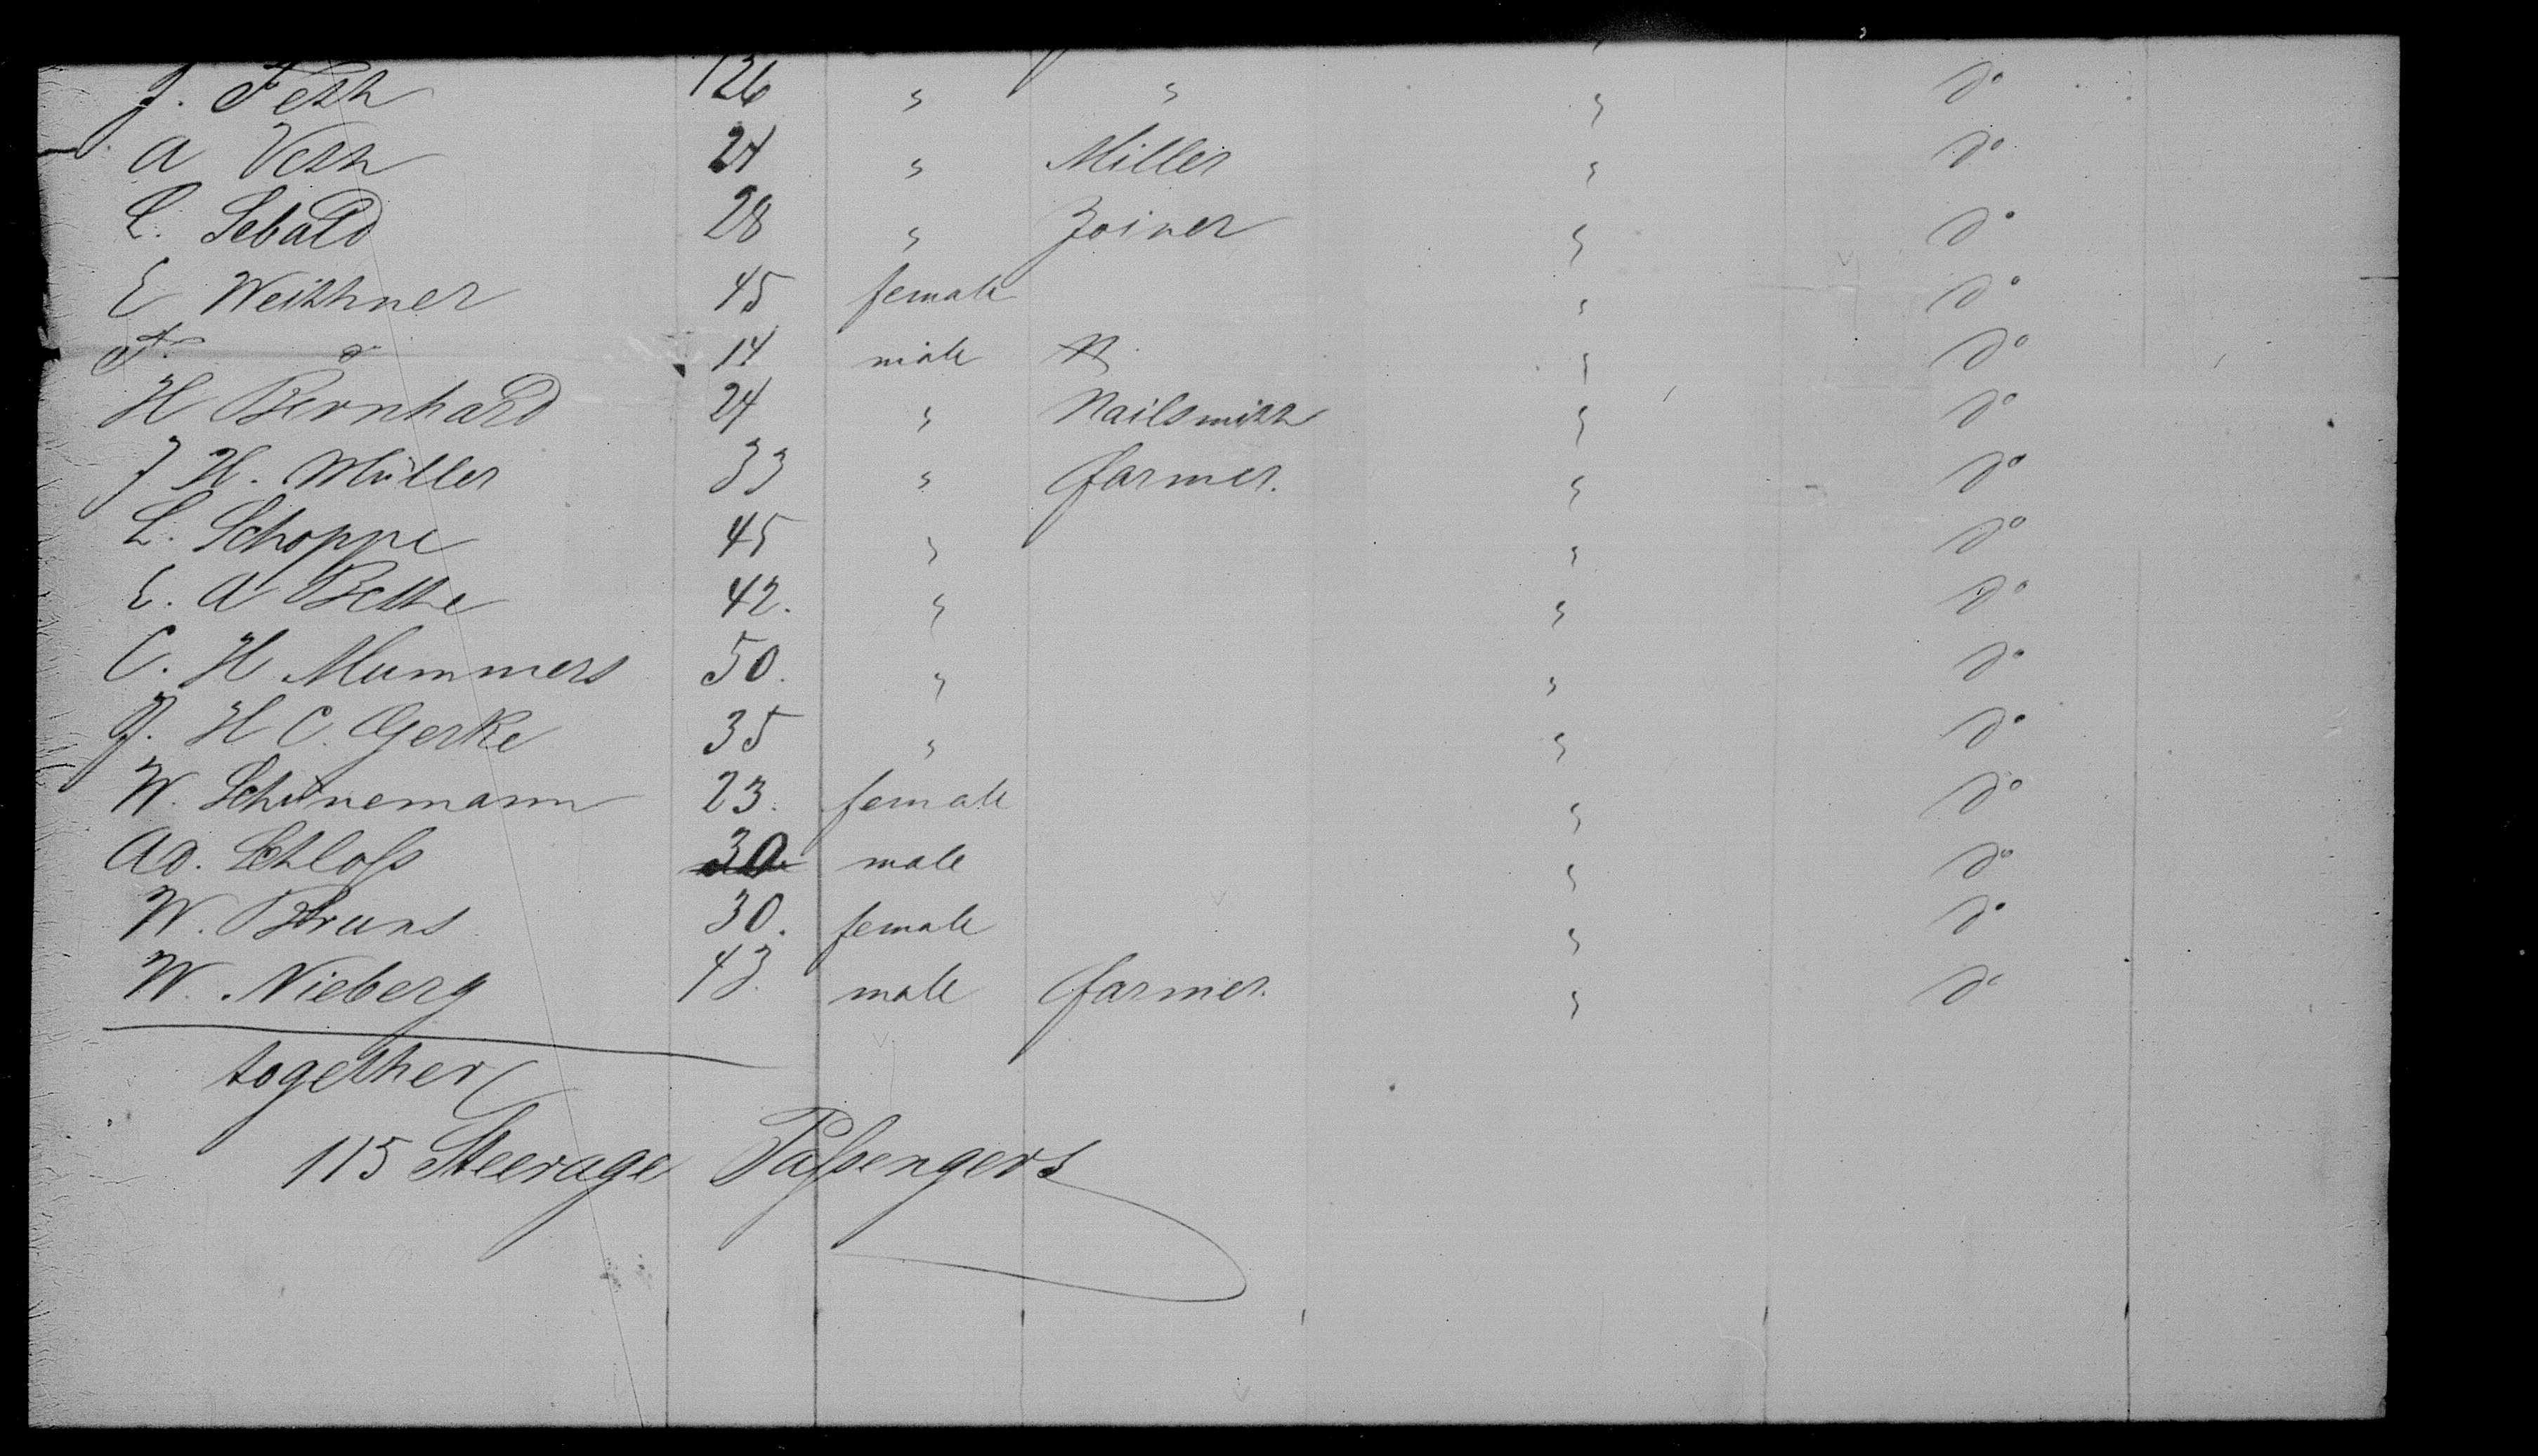 J. Feth 26 " " " do
A Veth 24 " Miller " do
L. Sebald 28 " Joiner " do
E Weithner 45 female " do
Fr do 14 male " do
H Bernhard 24 " Nailsmith " do
J H. Müller 33 " farmer. " do
L. Schoppe 45 " " do
E. A Bethe 42. " " do
C. H Mummers 50. " " do
J. H C. Gerke 35 " " do
W. Schünemann 23. female " do
Ad. Schloß 30 male " do
W. Bruns 30. female " do
W. Nieberg 43. male farmer. " do
together
115 Steerage Paßengers